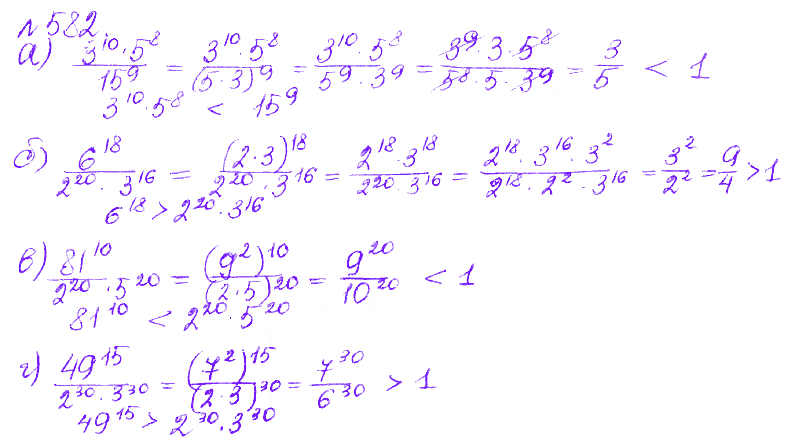 №582.
а) 3¹⁰·5⁸/15⁹ = 3¹⁰·5⁸/(5·3)⁹ = 3¹⁰·5⁸/5⁹·3⁹ = 3⁹·3·5⁸/5⁸·5·3⁹ = 3/5 < 1
3¹⁰·5⁸ < 15⁹
б) 6¹⁸/2²⁰·3¹⁶ = (2·3)¹⁸/2²⁰·3¹⁶ = 2¹⁸·3¹⁸/2²⁰·3¹⁶ = 2¹⁸·3¹⁶·3²/2¹⁸·2²·3¹⁶ = 3²/2² = 9/4 > 1
6¹⁸ > 2²⁰·3¹⁶
в) 81¹⁰/2²⁰·5²⁰ = (9²)¹⁰/(2·5)²⁰ = 9²⁰/10²⁰ < 1
81¹⁰ < 2²⁰·5²⁰
г) 49¹⁵/2³⁰·3³⁰ = (7²)¹⁵/(2·3)³⁰ = 7³⁰/6³⁰ > 1
49¹⁵ > 2³⁰·3³⁰